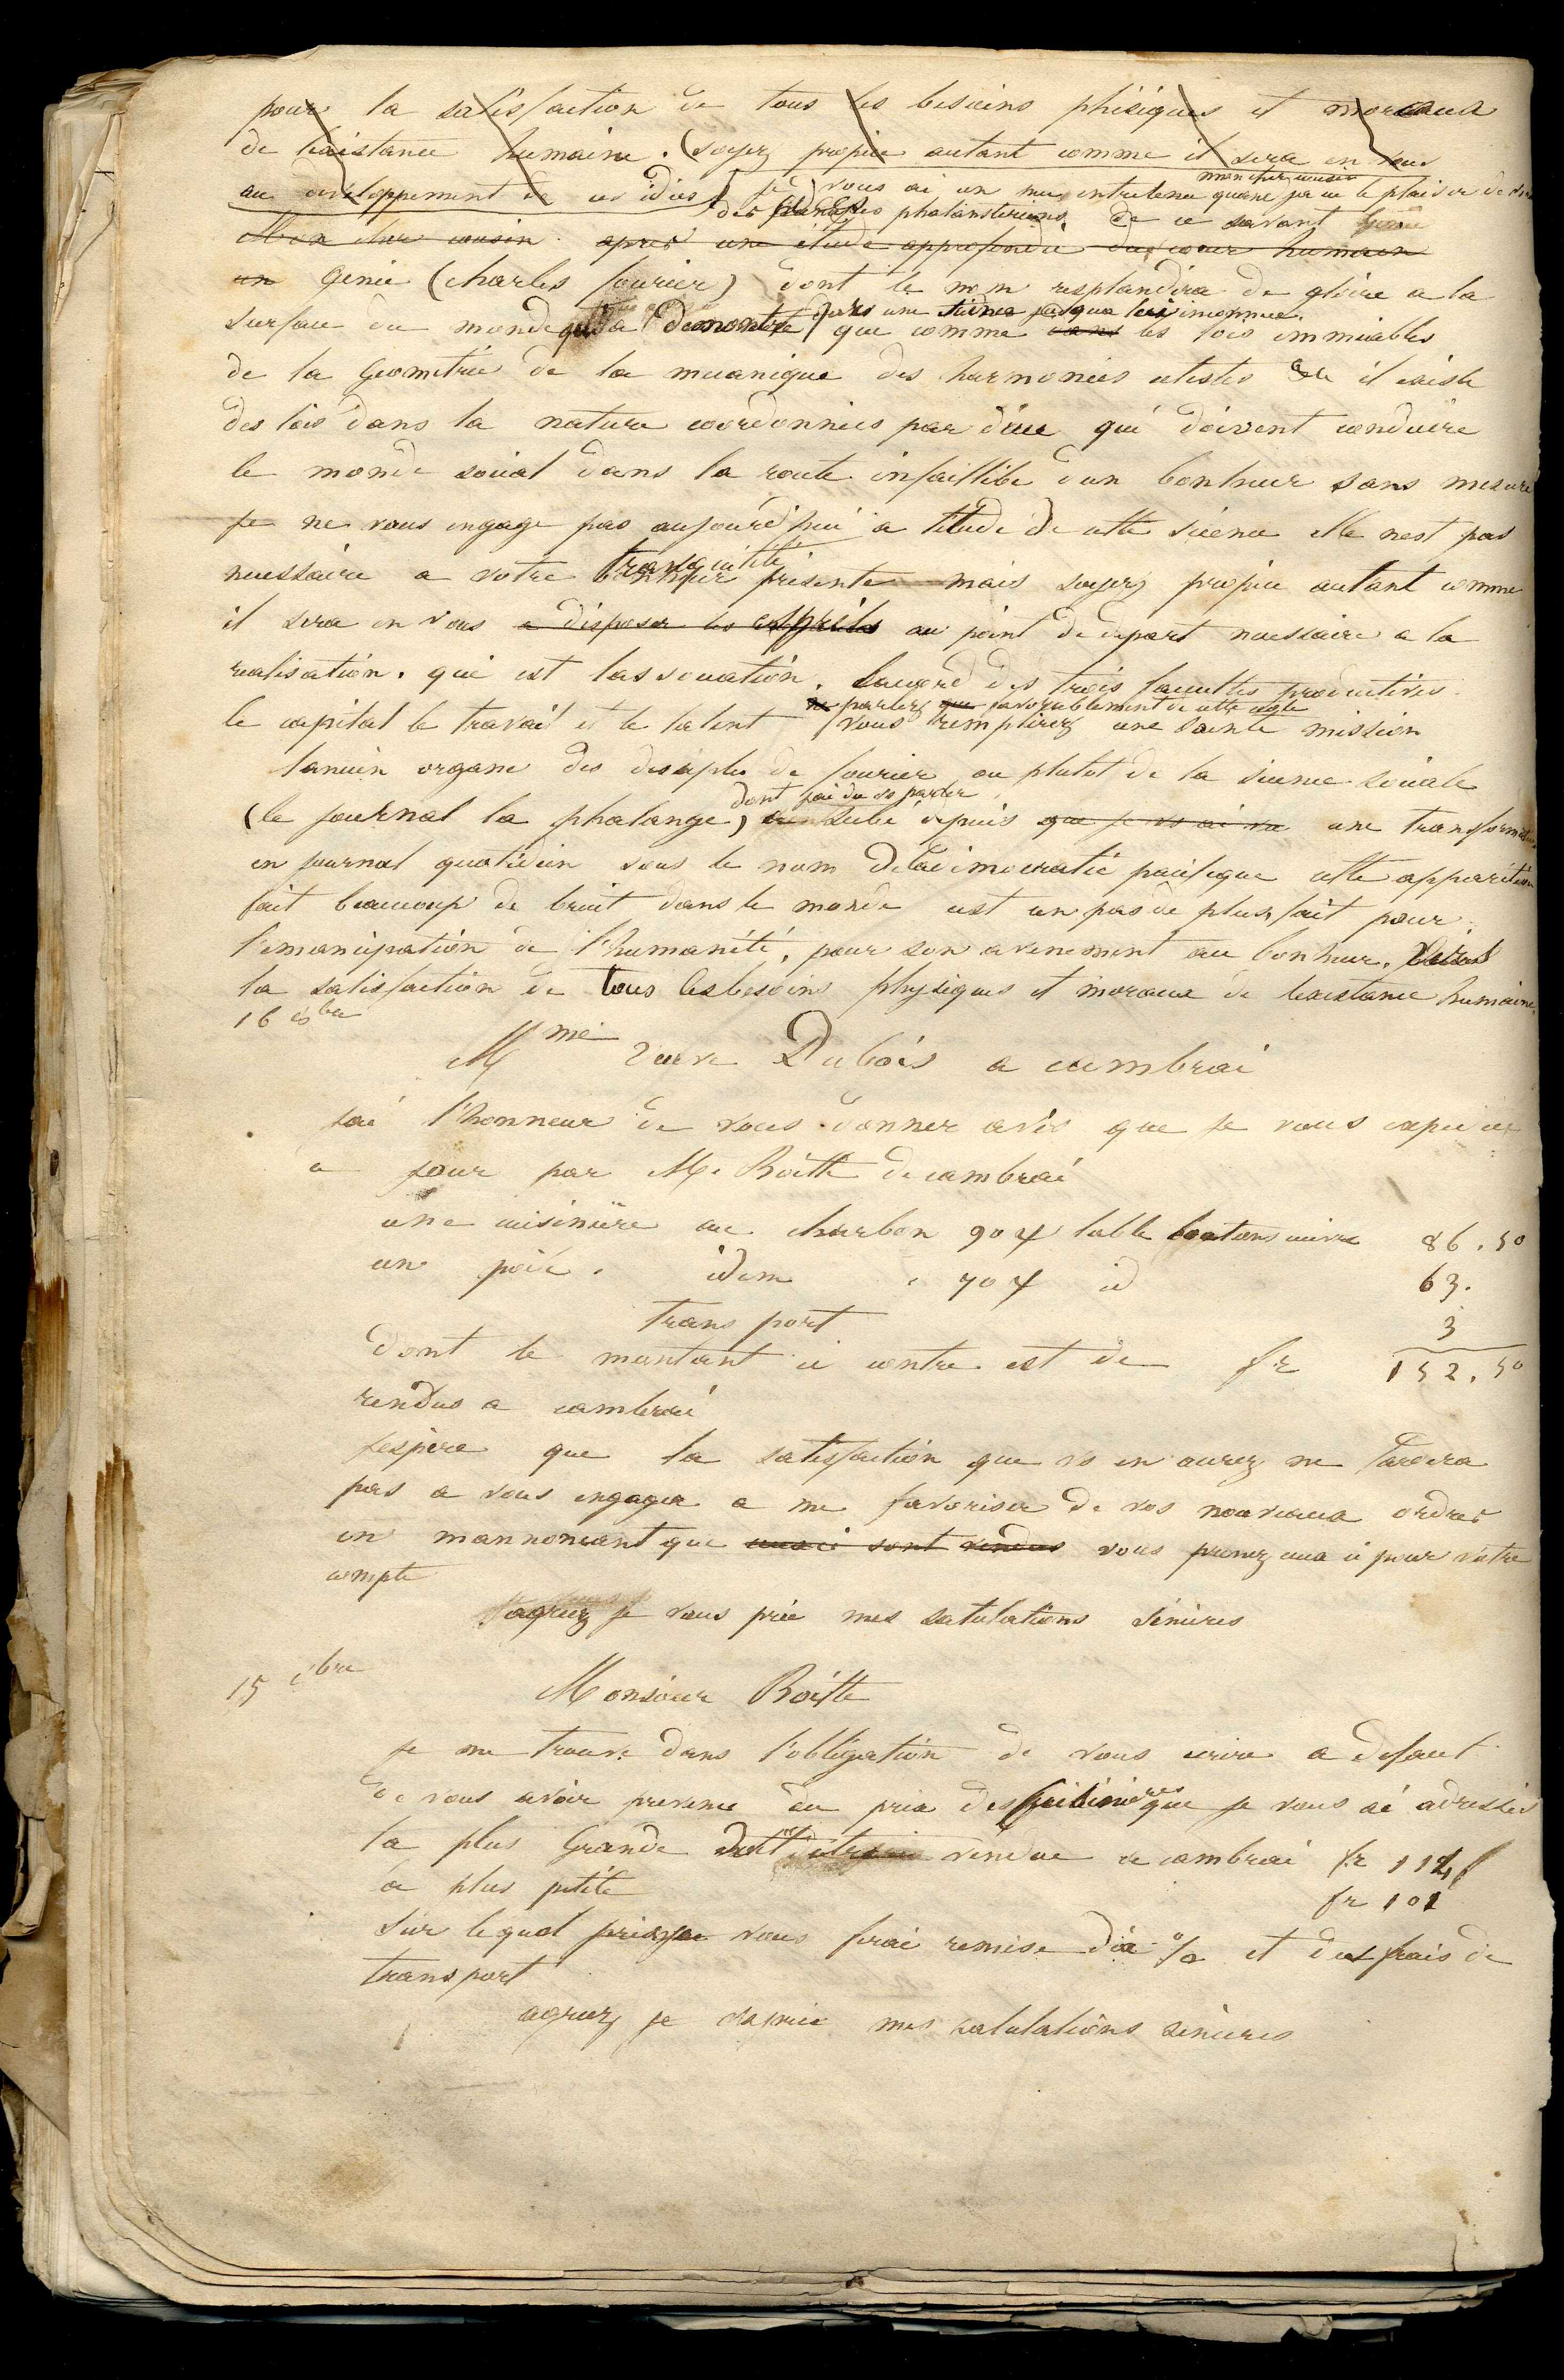 pour la satisfaction de tous les besoins phisiques et moraux
de lexistance humaine. (soyez propice autant comme il sera en vous
au developpement de ces idées) je vous ai un peu entretenu mon cher cousin quand jai eu le plaisir de
des phalansteriens de ce savant
Mon cher cousin apres une étude approfondie du coeur humain
un Genie (charles fourier) dont le nom resplandira de gloire a la
surface du monde qui a demontré dans une science jusqua lui inconnue que comme dans les lois immuables
de la Geometrie de la mecanique des harmonies celestes il existe
des lois dans la nature coordonnées par dieu qui doivent conduire
le monde social dans la route infaillible dun bonheur sans mesure
je ne vous engage pas aujourdhui a létude de cette science elle nest pas
necessaire a votre tranquilité presente mais soyez propice autant comme
il sera en vous a disposer les esprits au point de depart necessaire a la
realisation. qui est lassociation. laccord des trois facultés productives
le capital le travail et le talent parlez favorablement de cette ecole vous remplirez une sainte mission
lancien organe des disciples de fourier ou plutot de la science sociale
(le journal la phalange) dont jai du vs parler a subi depuis que je vs ai vu une transformation
en journal quotidien sous le nom de la democratie pacifique cette apparition
fait beaucoup de bruit dans le monde cest un pas de plus fait pour
l'emancipation de l'humanité, pour son avenement au bonheur,
la satisfaction de tous les besoins physiques et moraux de lexistance humaine.
16 8bre
Mme veuve Dubois a cambrai
jai l'honneur de vous donner avis que je vous expedie
ce jour par M. Boitte de cambrai
une cuisinière au charbon no 4 table boutons cuivre 86.50
un poële. idem. no 4 id 63.
transport 3
dont le montant ci contre est de fr 152.50
rendus a cambrai
jespère que la satisfaction que vs en aurez ne tardera
pas a vous engager a me favoriser de vos nouveaux ordres
en mannoncant que ceux ci sont rendus vous prenez ceux ci pour votre
compte
agreez je vous prie mes salutations sincères
15 bre
Monsieur Boitte
je me trouve dans l'obligation de vous ecrire a defaut
de vous avoir prevenu du prix des cuisinières que je vous ai adressées
la plus Grande doit etre vendue a cambrai fr 114
la plus petite fr 101
sur lequel prix je vous ferai remise dix % et des frais de
transport
agreez je vs prie mes salutations sincères